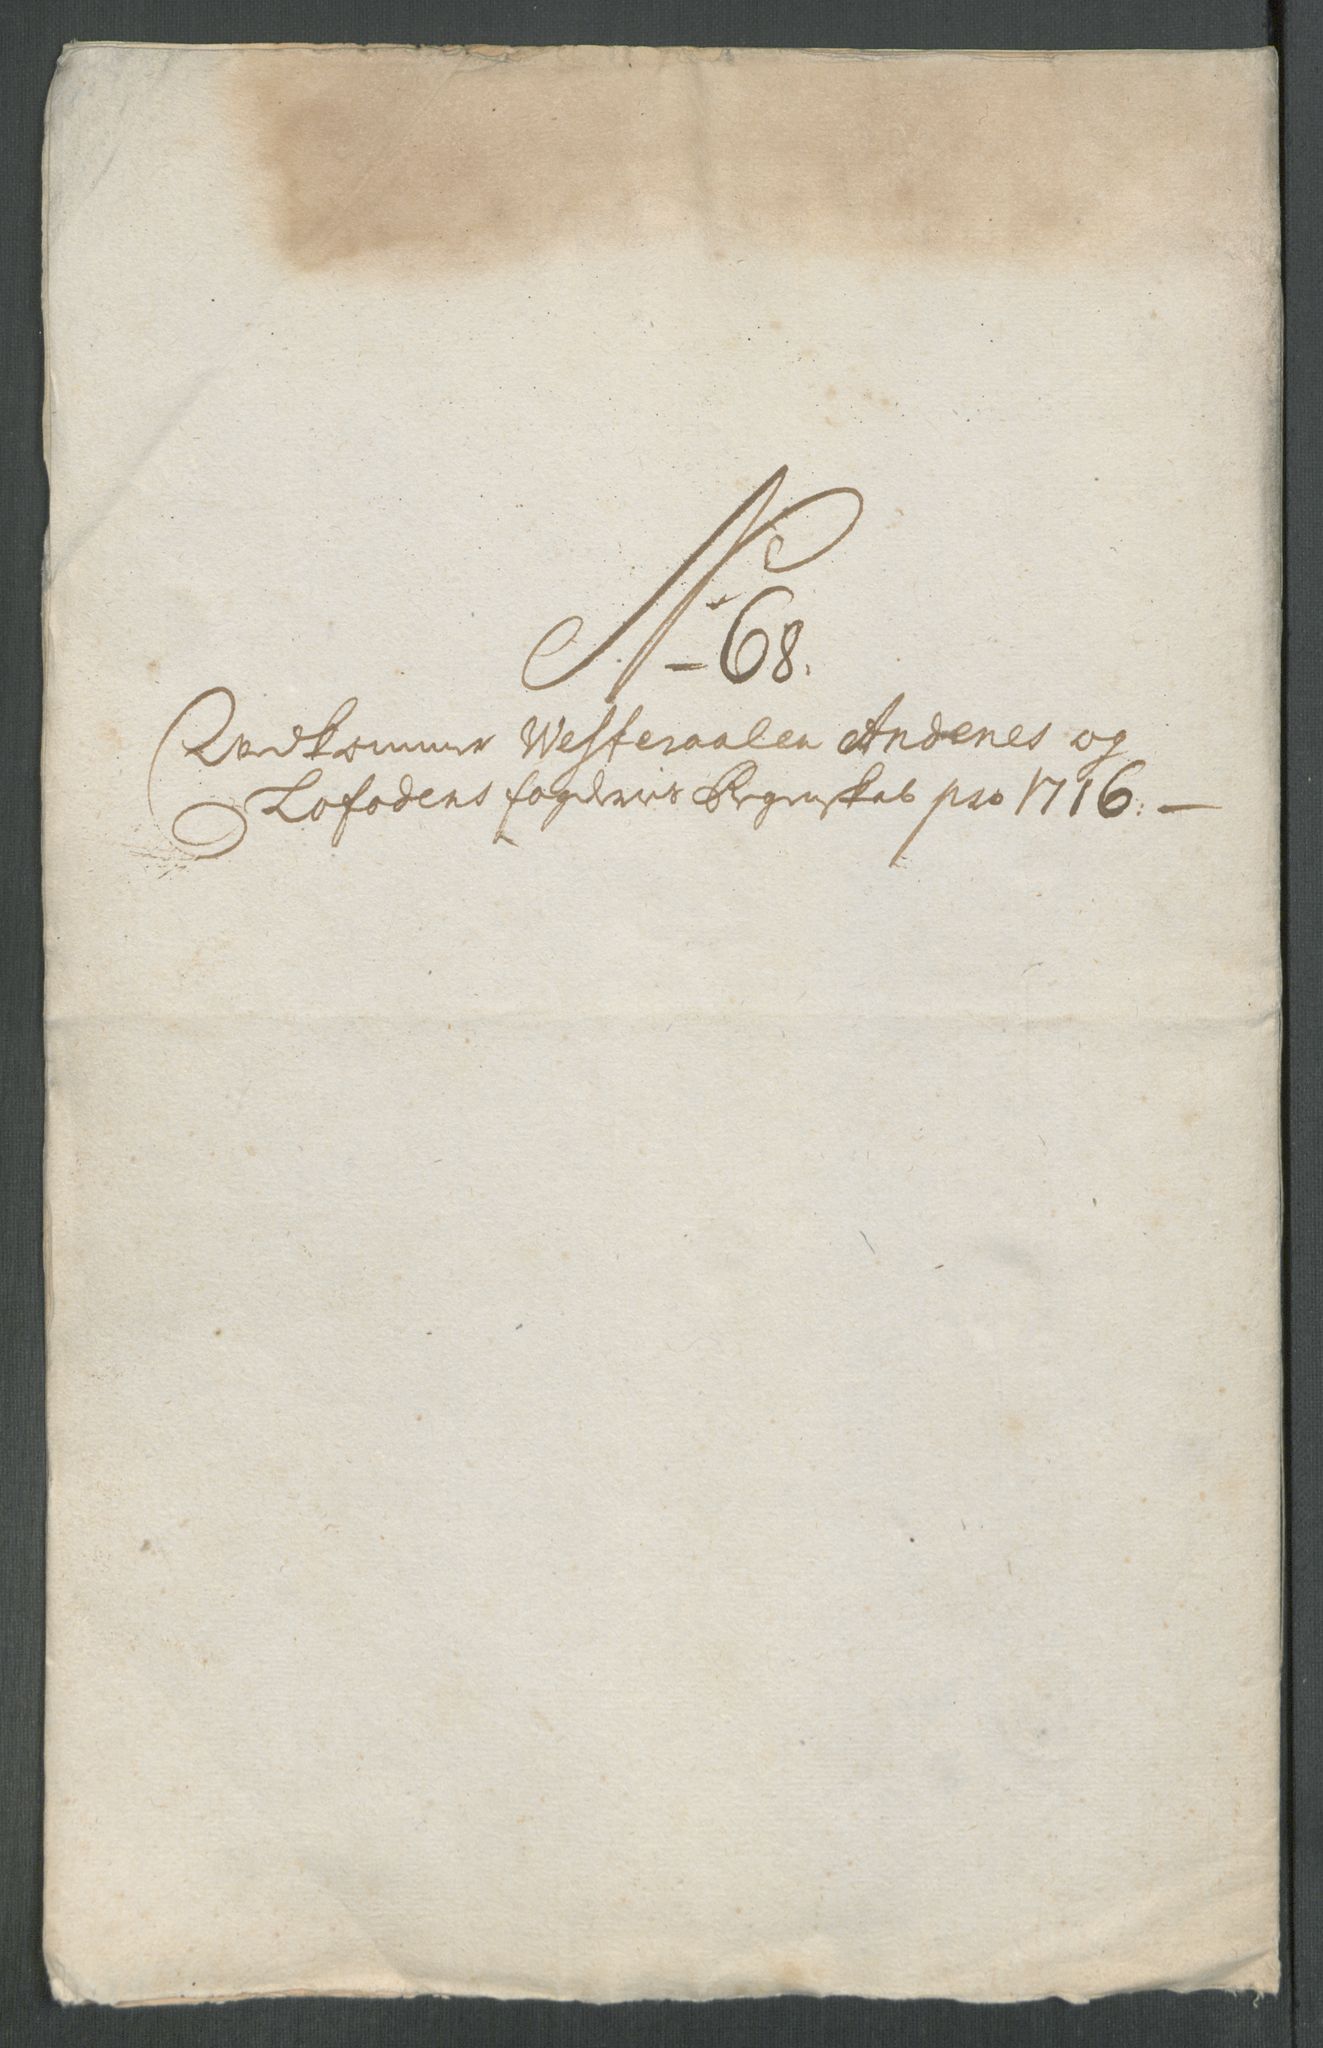 N. 68.
Vedkommer Westeraalen Andenes og
Lofodens fogderies Regenskab pro 1716. —